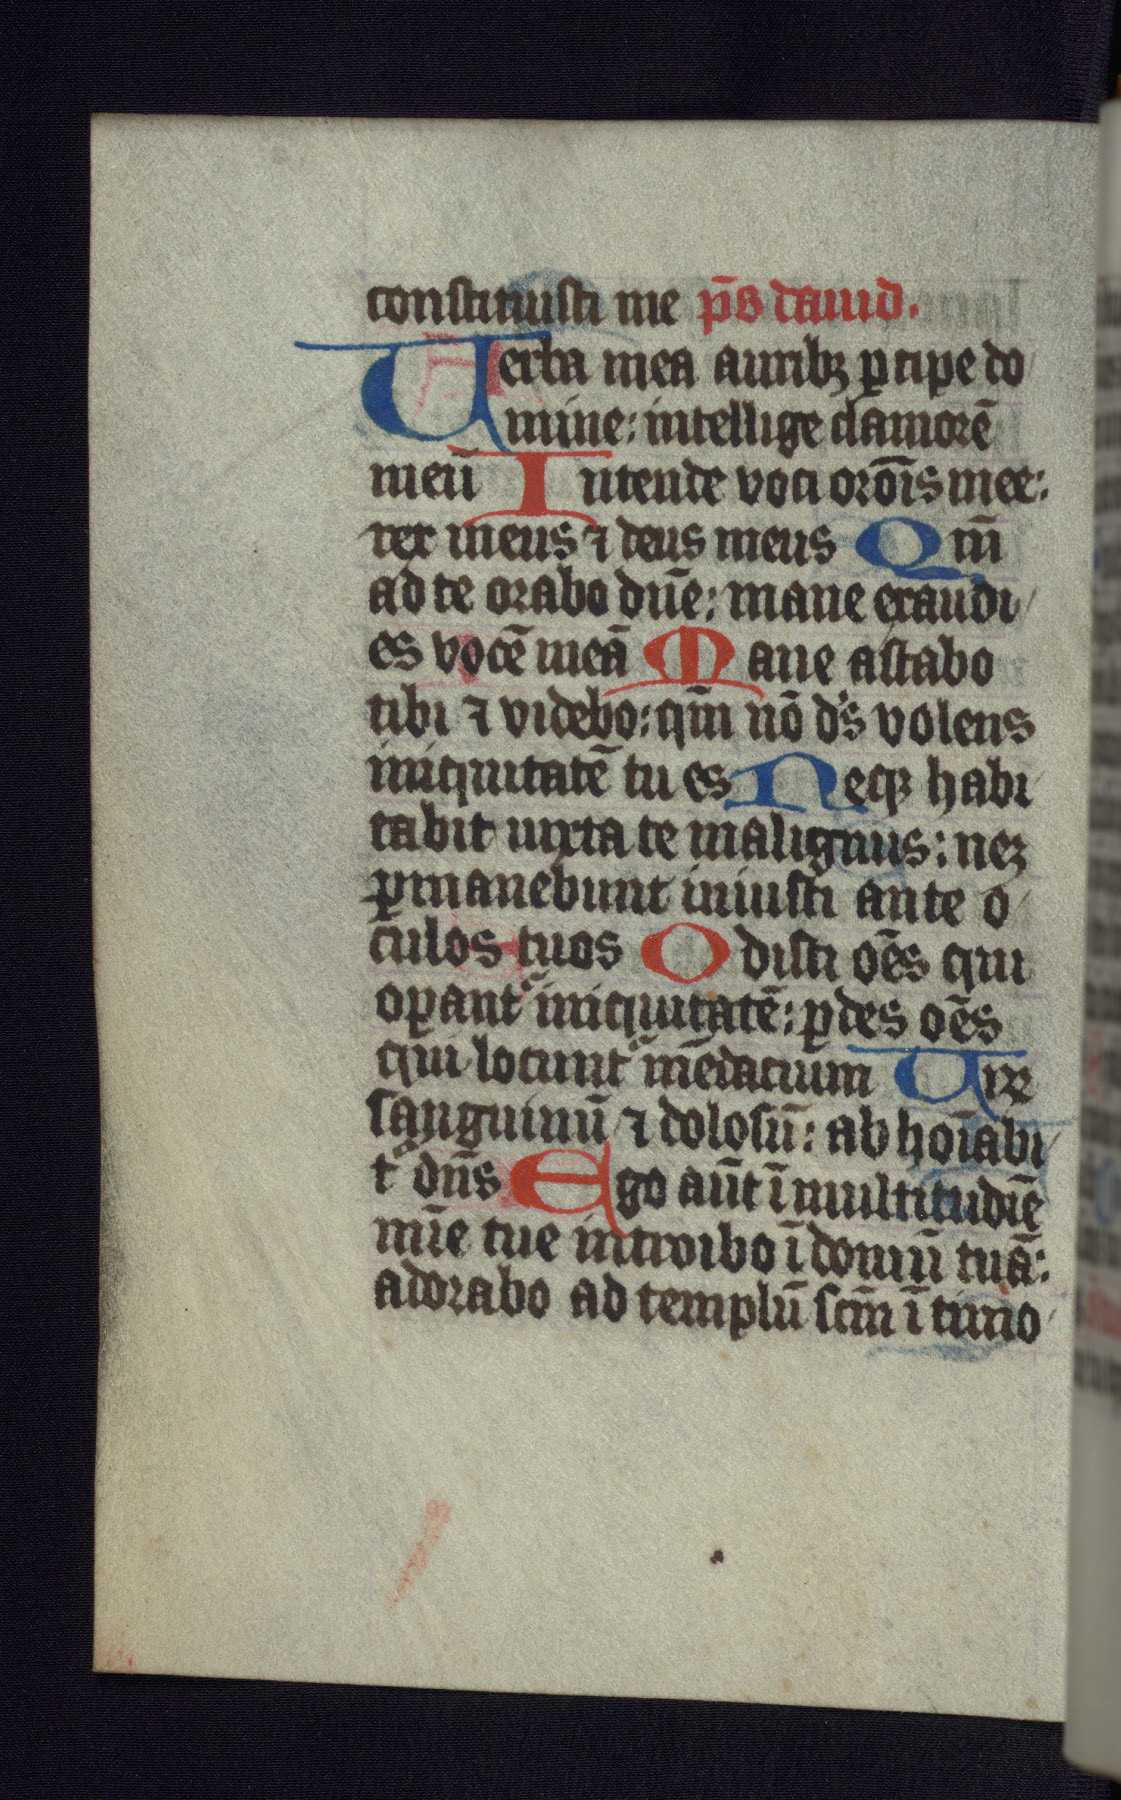 constituisti me p̄s dauid.
Uerba mea auribꝫ ꝑcipe do
mine: intellige clamorē
meū Intende voci orōis mee:
rex meus ⁊ deus meus Qm̄
ad te orabo dn̄e: mane exaudi
es vocē meā Mane astabo
tibi ⁊ videbo: qm̄ nō ds̄ volens
iniquitatē tu es Necꝫ habi
tabit iuxta te malignus: neꝫ
ꝑmanebunt iniusti ante o
culos tuos Odisti oēs qui
oꝑant᷑ iniquitatē: ꝑdes oēs
qui locunt᷑ mēdacium Uiꝝ
sanguinū ⁊ dolosū: abhoīabi
t᷑ dn̄s Ego aūt ī multitudīe
mīe tue introibo ī domū tuā:
adorabo ad templū scm̄ ī timo